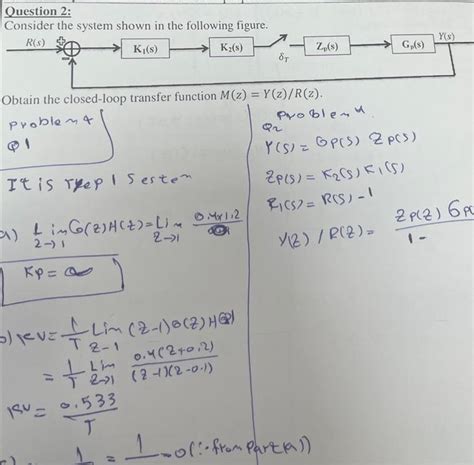 Question 2:
Consider the system shown in the following figure.
R(s) + − K₁(s) K₂(s) δ_T Z_p(s) G_p(s) Y(s)
Obtain the closed-loop transfer function M(z) = Y(z)/R(z).
Problem 4
Q1
It is
a) Lim G(z)H(z) = Lim 0.4x1.2
z→1 z→1
Kp = ∞
b) KV = 1/T Lim (z-1) G(z)H(z)
z-1
= 1/T Lim 0.4(z+0.2) / (z-1)(z-0.1)
z→1
KV = 0.533 / T
1 = 1 = 0 (∵ from Part(a))
Problem 4
Q2
Y(s) = Gp(s) Zp(s)
Zp(s) = K2(s) K1(s)
K1(s) = R(s) - 1
Y(z) / R(z) = Zp(z) Gp( / 1 -